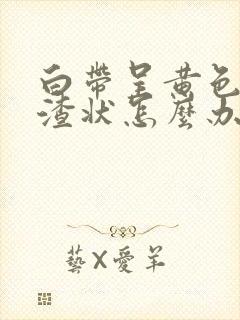 白帶呈黃色
渣状怎麽办
藝X愛羊